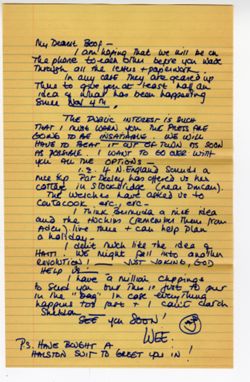 My Dearest Boop –
I am hoping that we will be on
the phone to each other before you wade
through all the letters + paperwork –
In any case they are geared up
thus to give you at least half an
idea of what has been happening
since Nov 4th,
The public interest is such
that I must warn you the press are
going to be insatiable – we will
have to beat it out of town as soon
as possible. I want to go over with
you all the options –
i.e. 4 N England Sounds a
nice
Pat Dealey has offered us her
cottage in Stockbridge (near Duncan).
The Welches have asked us to
etc., etc –
I think Bermuda a nice idea
and the (remember them from
Aden) live there + can help plan
a holiday –
I don't much like the idea of
Haiti we might fall into another
revolution! – just joking, God
help us –
I have a million clippings
to send you but this is just to put
in the "bag" in case everything
happens too fast + I can't catch
See you soon!
Wee.
P.S. Have bought a
Halston suit to greet you in!